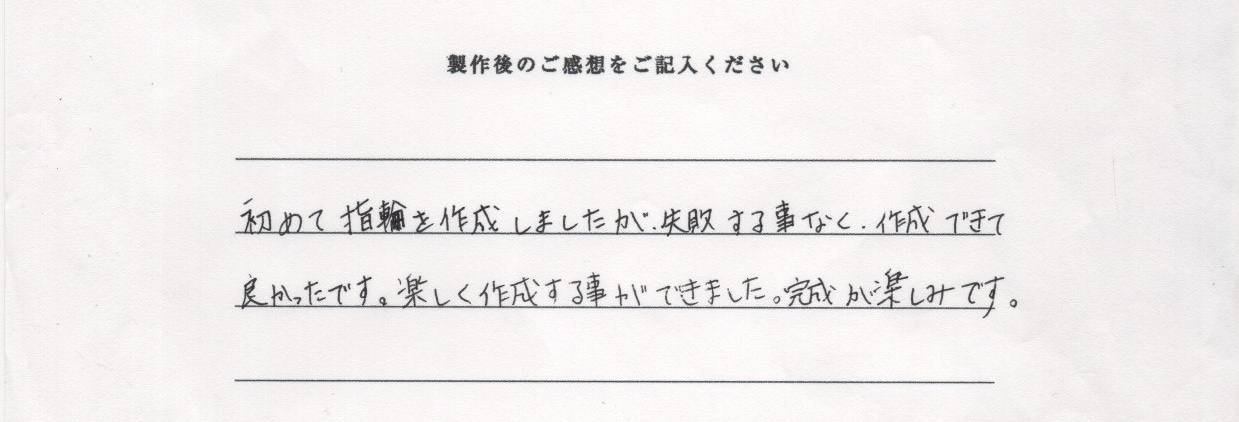 製作後のご感想をご記入ください
初めて指輪を作成しましたが、失敗する事なく、作成できて
良かったです。楽しく作成する事ができました。完成が楽しみです。